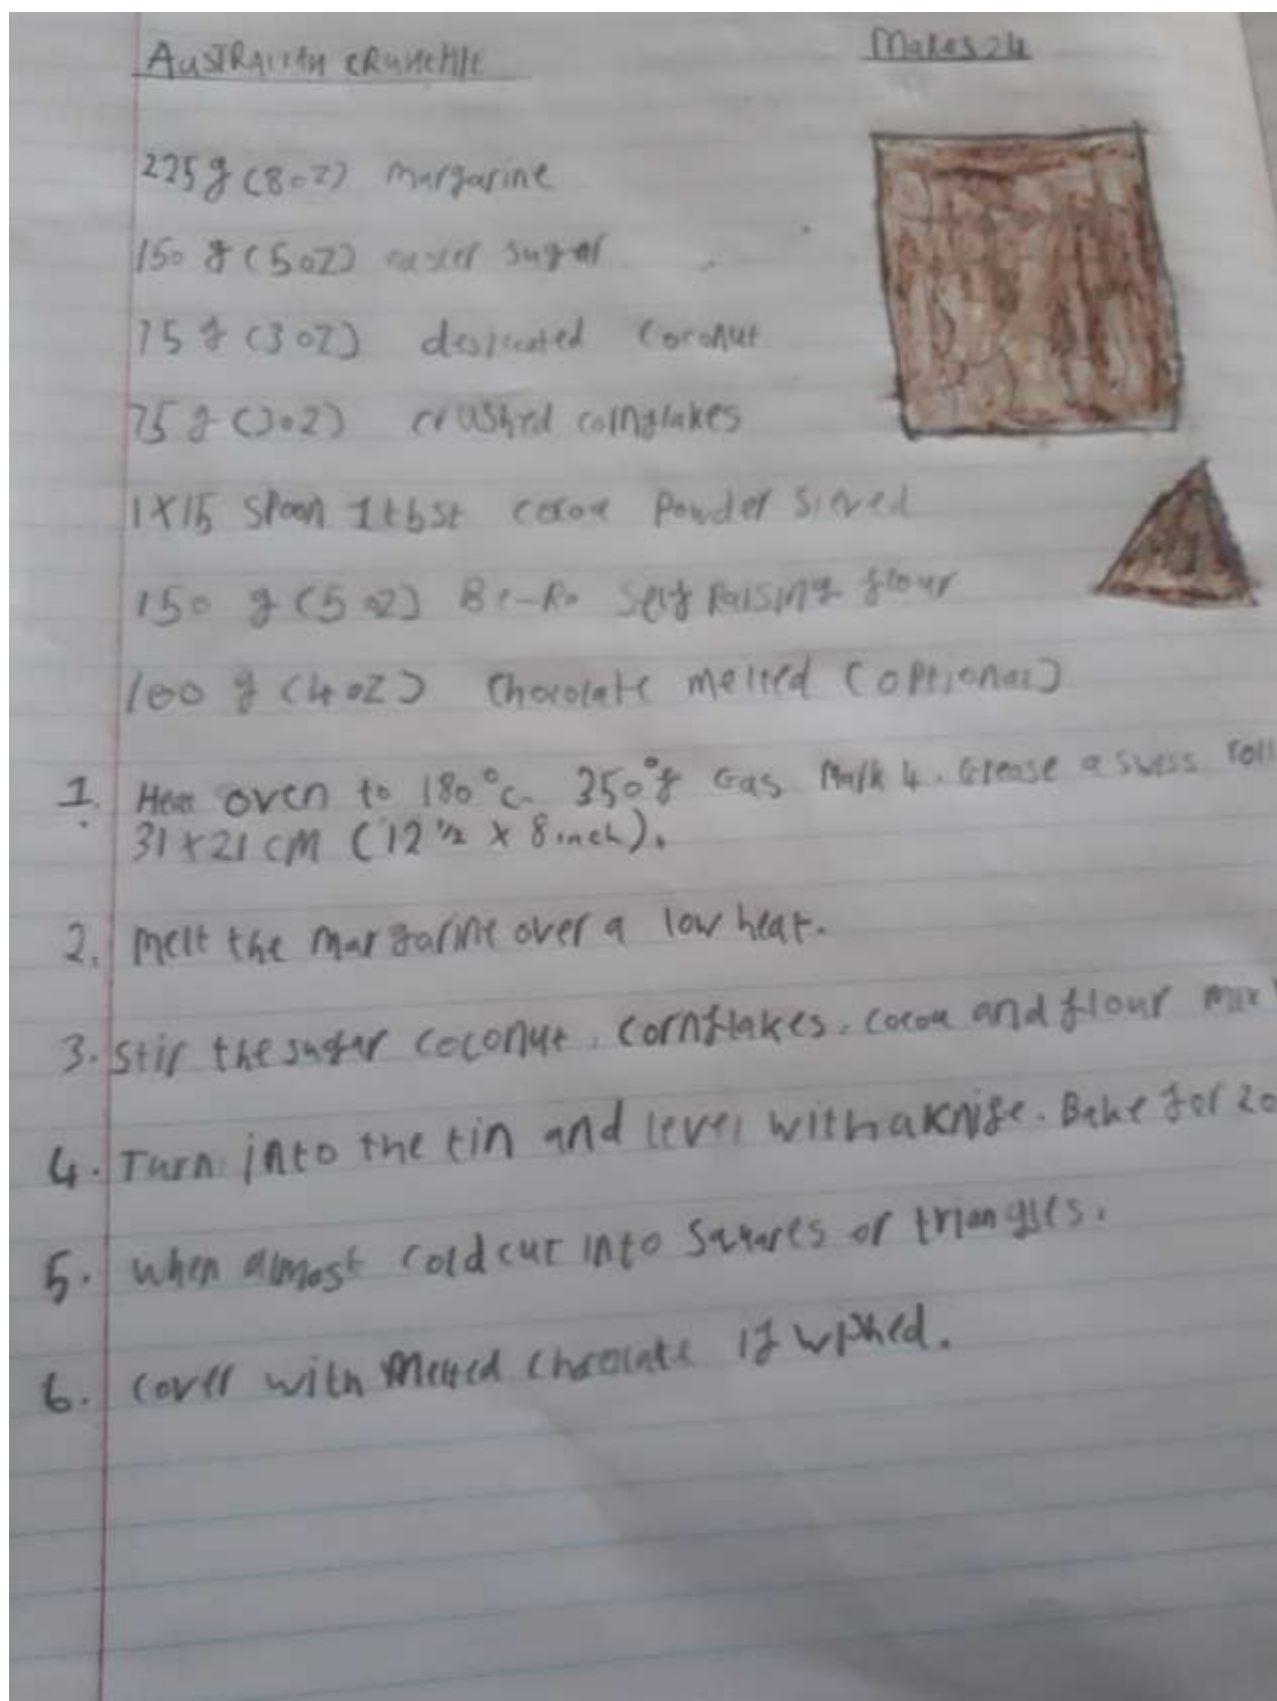 AUSTRALIAN CRUNCHIE
Makes 24
225g (8oz) margarine
150 g (5oz) caster sugar
75 g (3oz) desiccated coconut
75 g (3oz) crushed cornflakes
1X15 spoon 1tbst cocoa Powder sieved
150 g (5oz) Be-Ro Self Raising flour
100 g (4oz) chocolate melted (optional)
1. Heat oven to 180°c 350°f Gas Mark 4. Grease a swiss roll
31x21 cM (12 1/2 x 8 inch).
2. melt the margarine over a low heat.
3. Stir the sugar coconut, cornflakes, cocoa and flour mix
4. Turn into the tin and level with a knife. Bake for 20
5. when almost cold cut into squares or triangles.
6. cover with melted chocolate if wished.